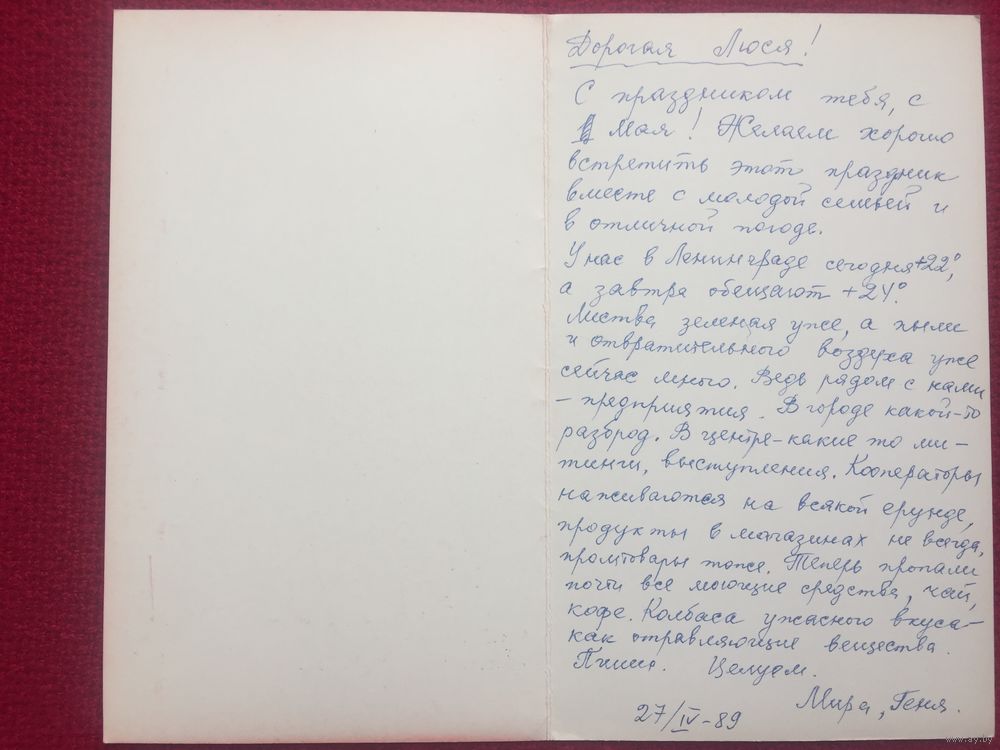 Дорогая Люся!
С праздником тебя, с
1 Мая! Желаем хорошо
встретить этот праздник
вместе с молодой семьёй и
в отличной погоде.
У нас в Ленинграде сегодня +22°,
а завтра обещают +24°.
Листва зеленая уже, а пыли
и отвратительного воздуха уже
сейчас много. Ведь рядом с нами
- предприятия. В городе какой-то
разброд. В центре - какие то ми-
тинги, выступления. Кооператоры
наживаются на всякой ерунде,
продукты в магазинах не всегда,
промтовары тоже. Теперь пропали
почти все моющие средства, чай,
кофе. Колбаса ужасного вкуса -
как отравляющие вещества.
Пиши. Целуем.
Мира, Геня.
27/IV-89
www.ay.by